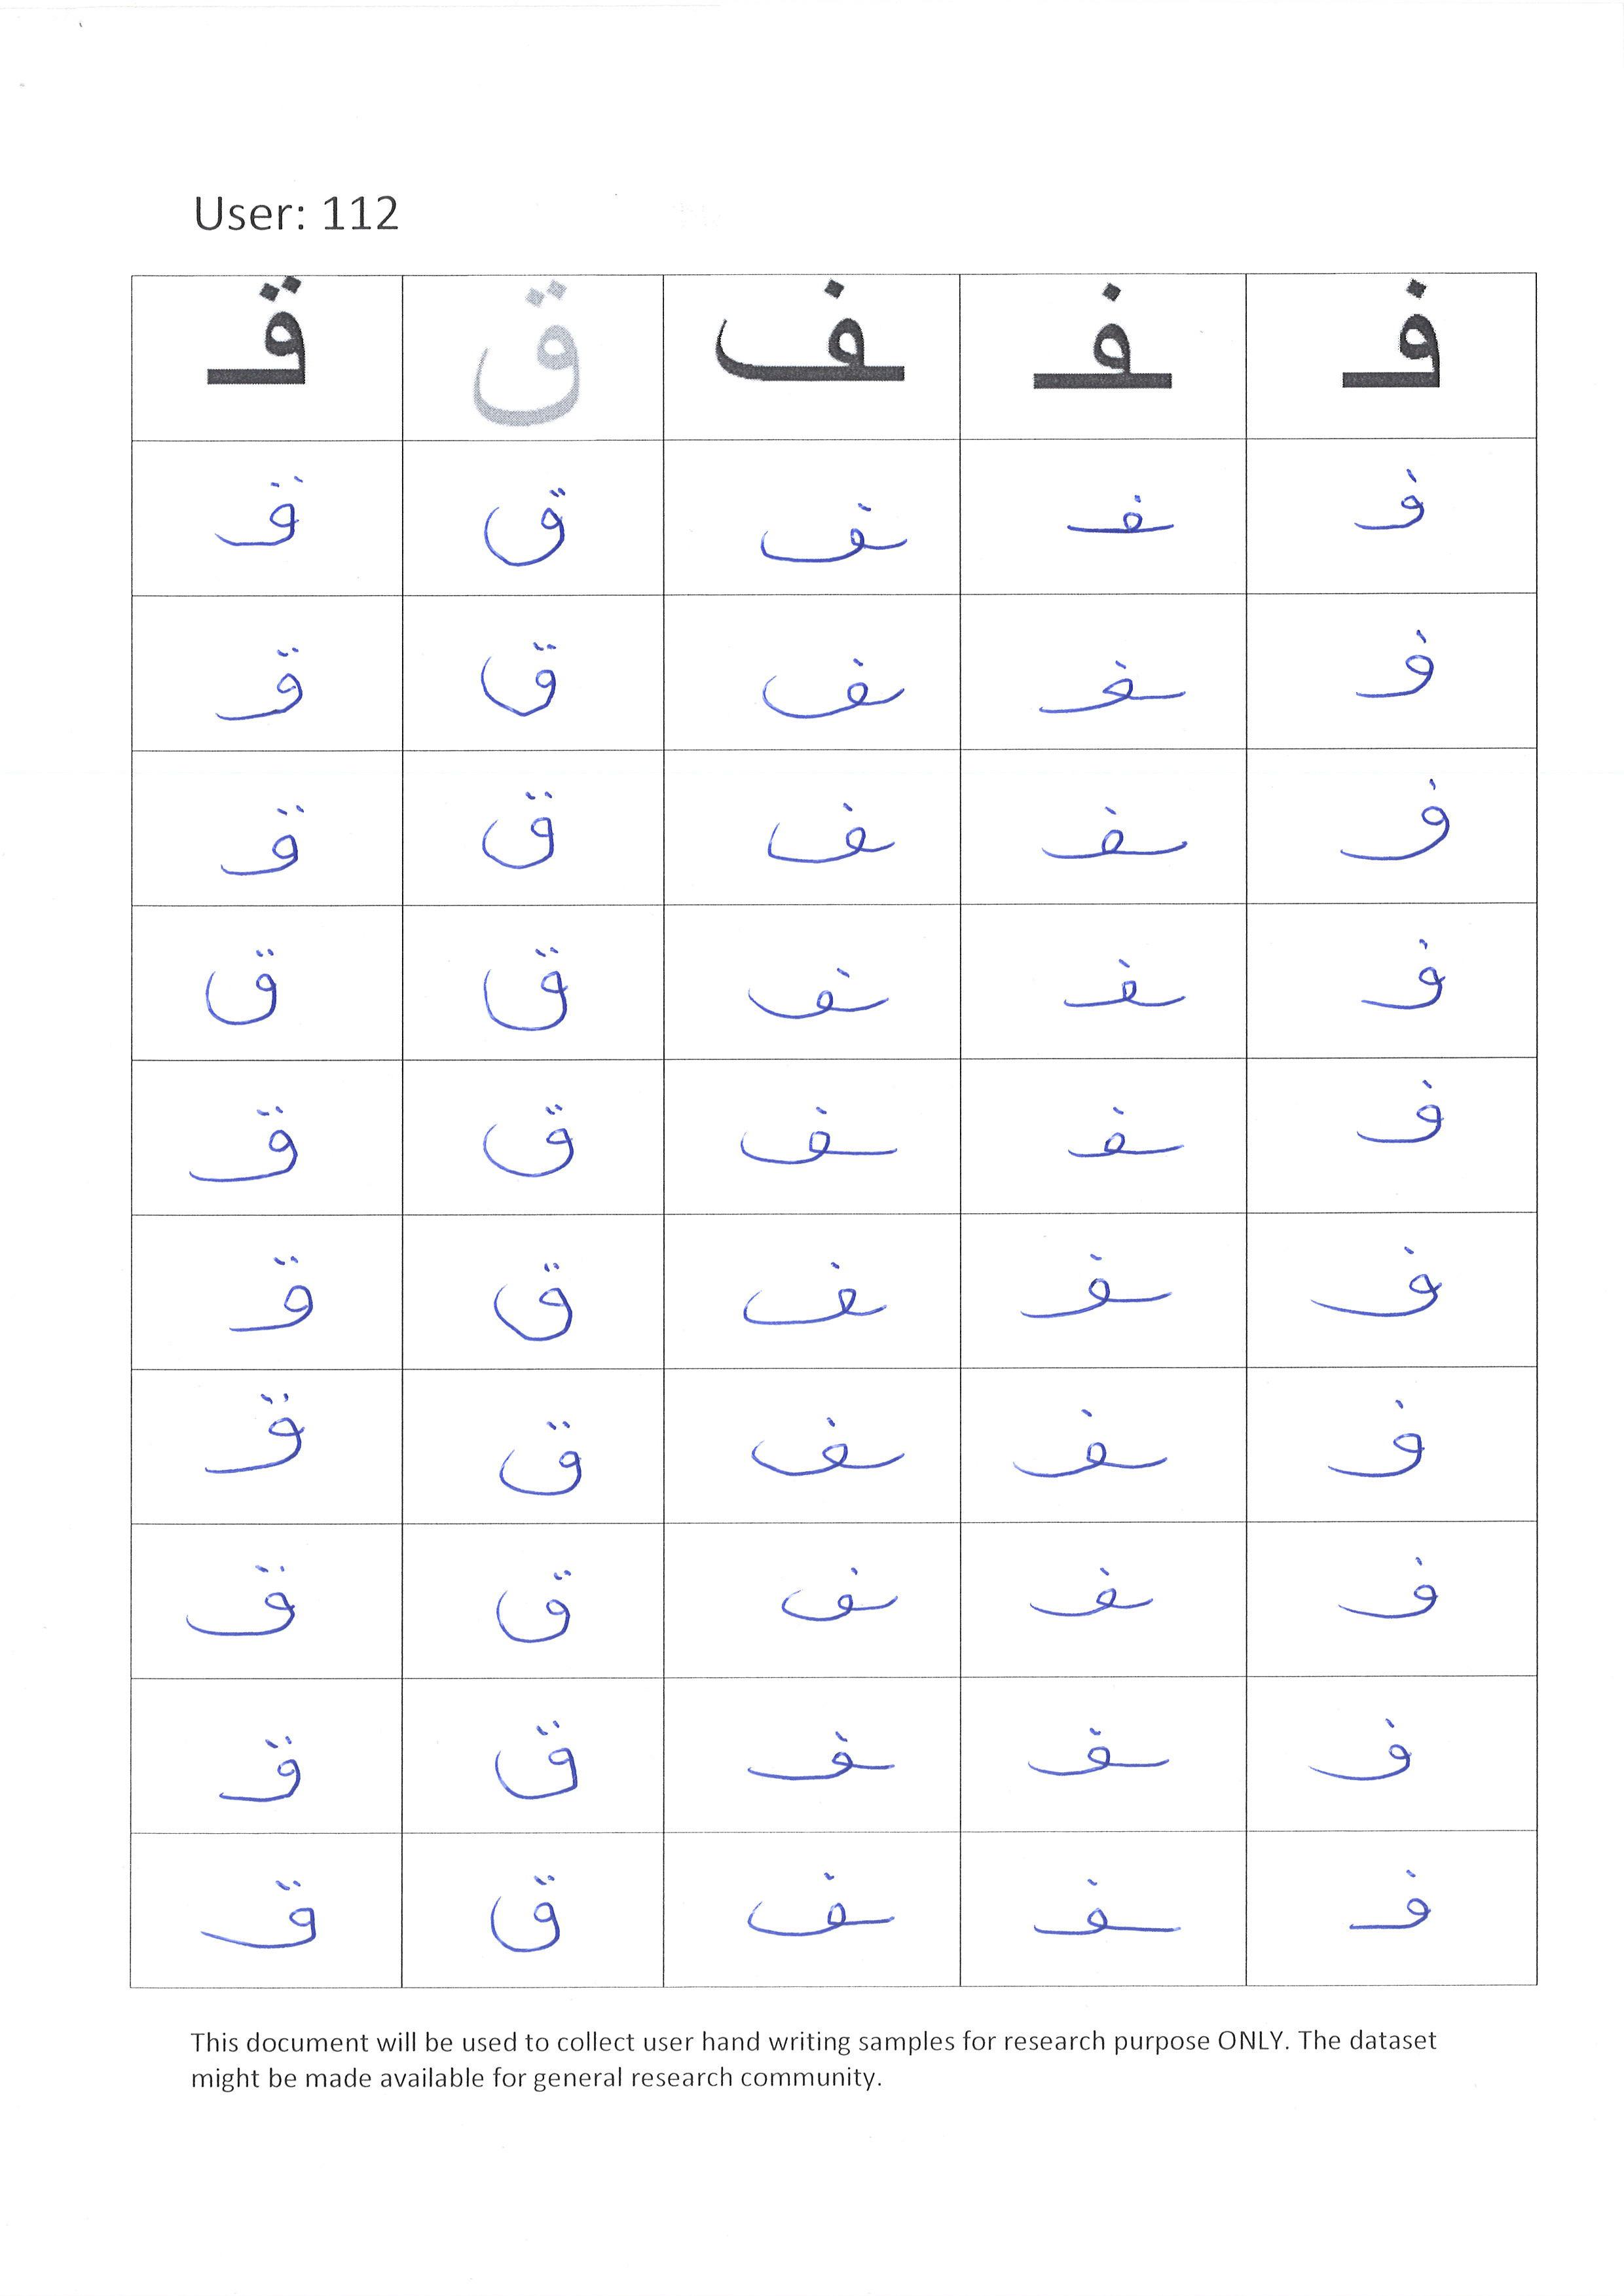 User: 112
فـ ـفـ ـف ق قـ
فـ ـفـ ـف ق قـ
فـ ـفـ ـف ق قـ
فـ ـفـ ـف ق قـ
فـ ـفـ ـف ق ق
فـ ـفـ ـف ق قـ
فـ ـفـ ـف ق قـ
فـ ـفـ ـف ق قـ
فـ ـفـ ـف ق قـ
فـ ـفـ ـف ق قـ
فـ ـفـ ـف ق قـ
This document will be used to collect user hand writing samples for research purpose ONLY. The dataset
might be made available for general research community.